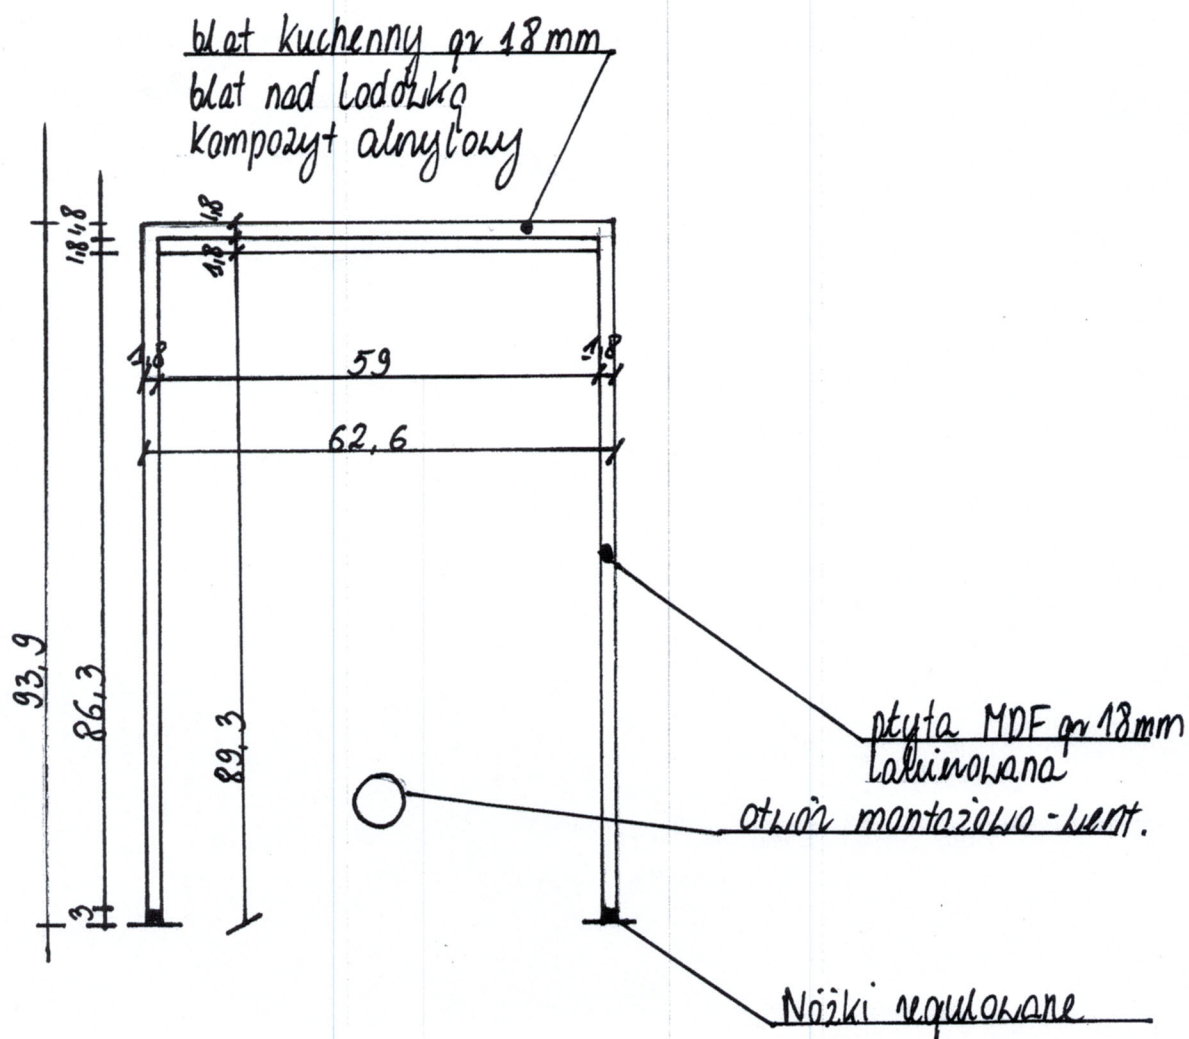 blat kuchenny gr 18mm
blat nad lodówką
kompozyt akrylowy
1,8
1,8
1,8
1,8
1,8
59
1,8
62,6
93,9
86,3
89,3
płyta MDF gr 18mm
lakierowana
otwór montażowo-went.
3
Nóżki regulowane